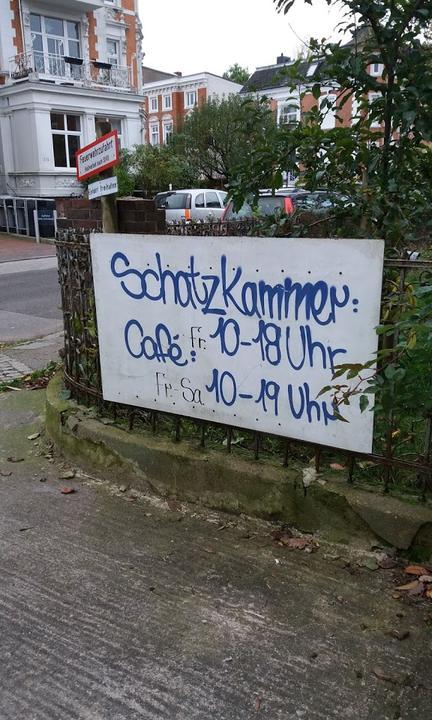 Feuerwehrzufahrt
freihalten
Schatzkammer:
Café: Fr 10-18 Uhr
Fr-Sa 10-19 Uhr